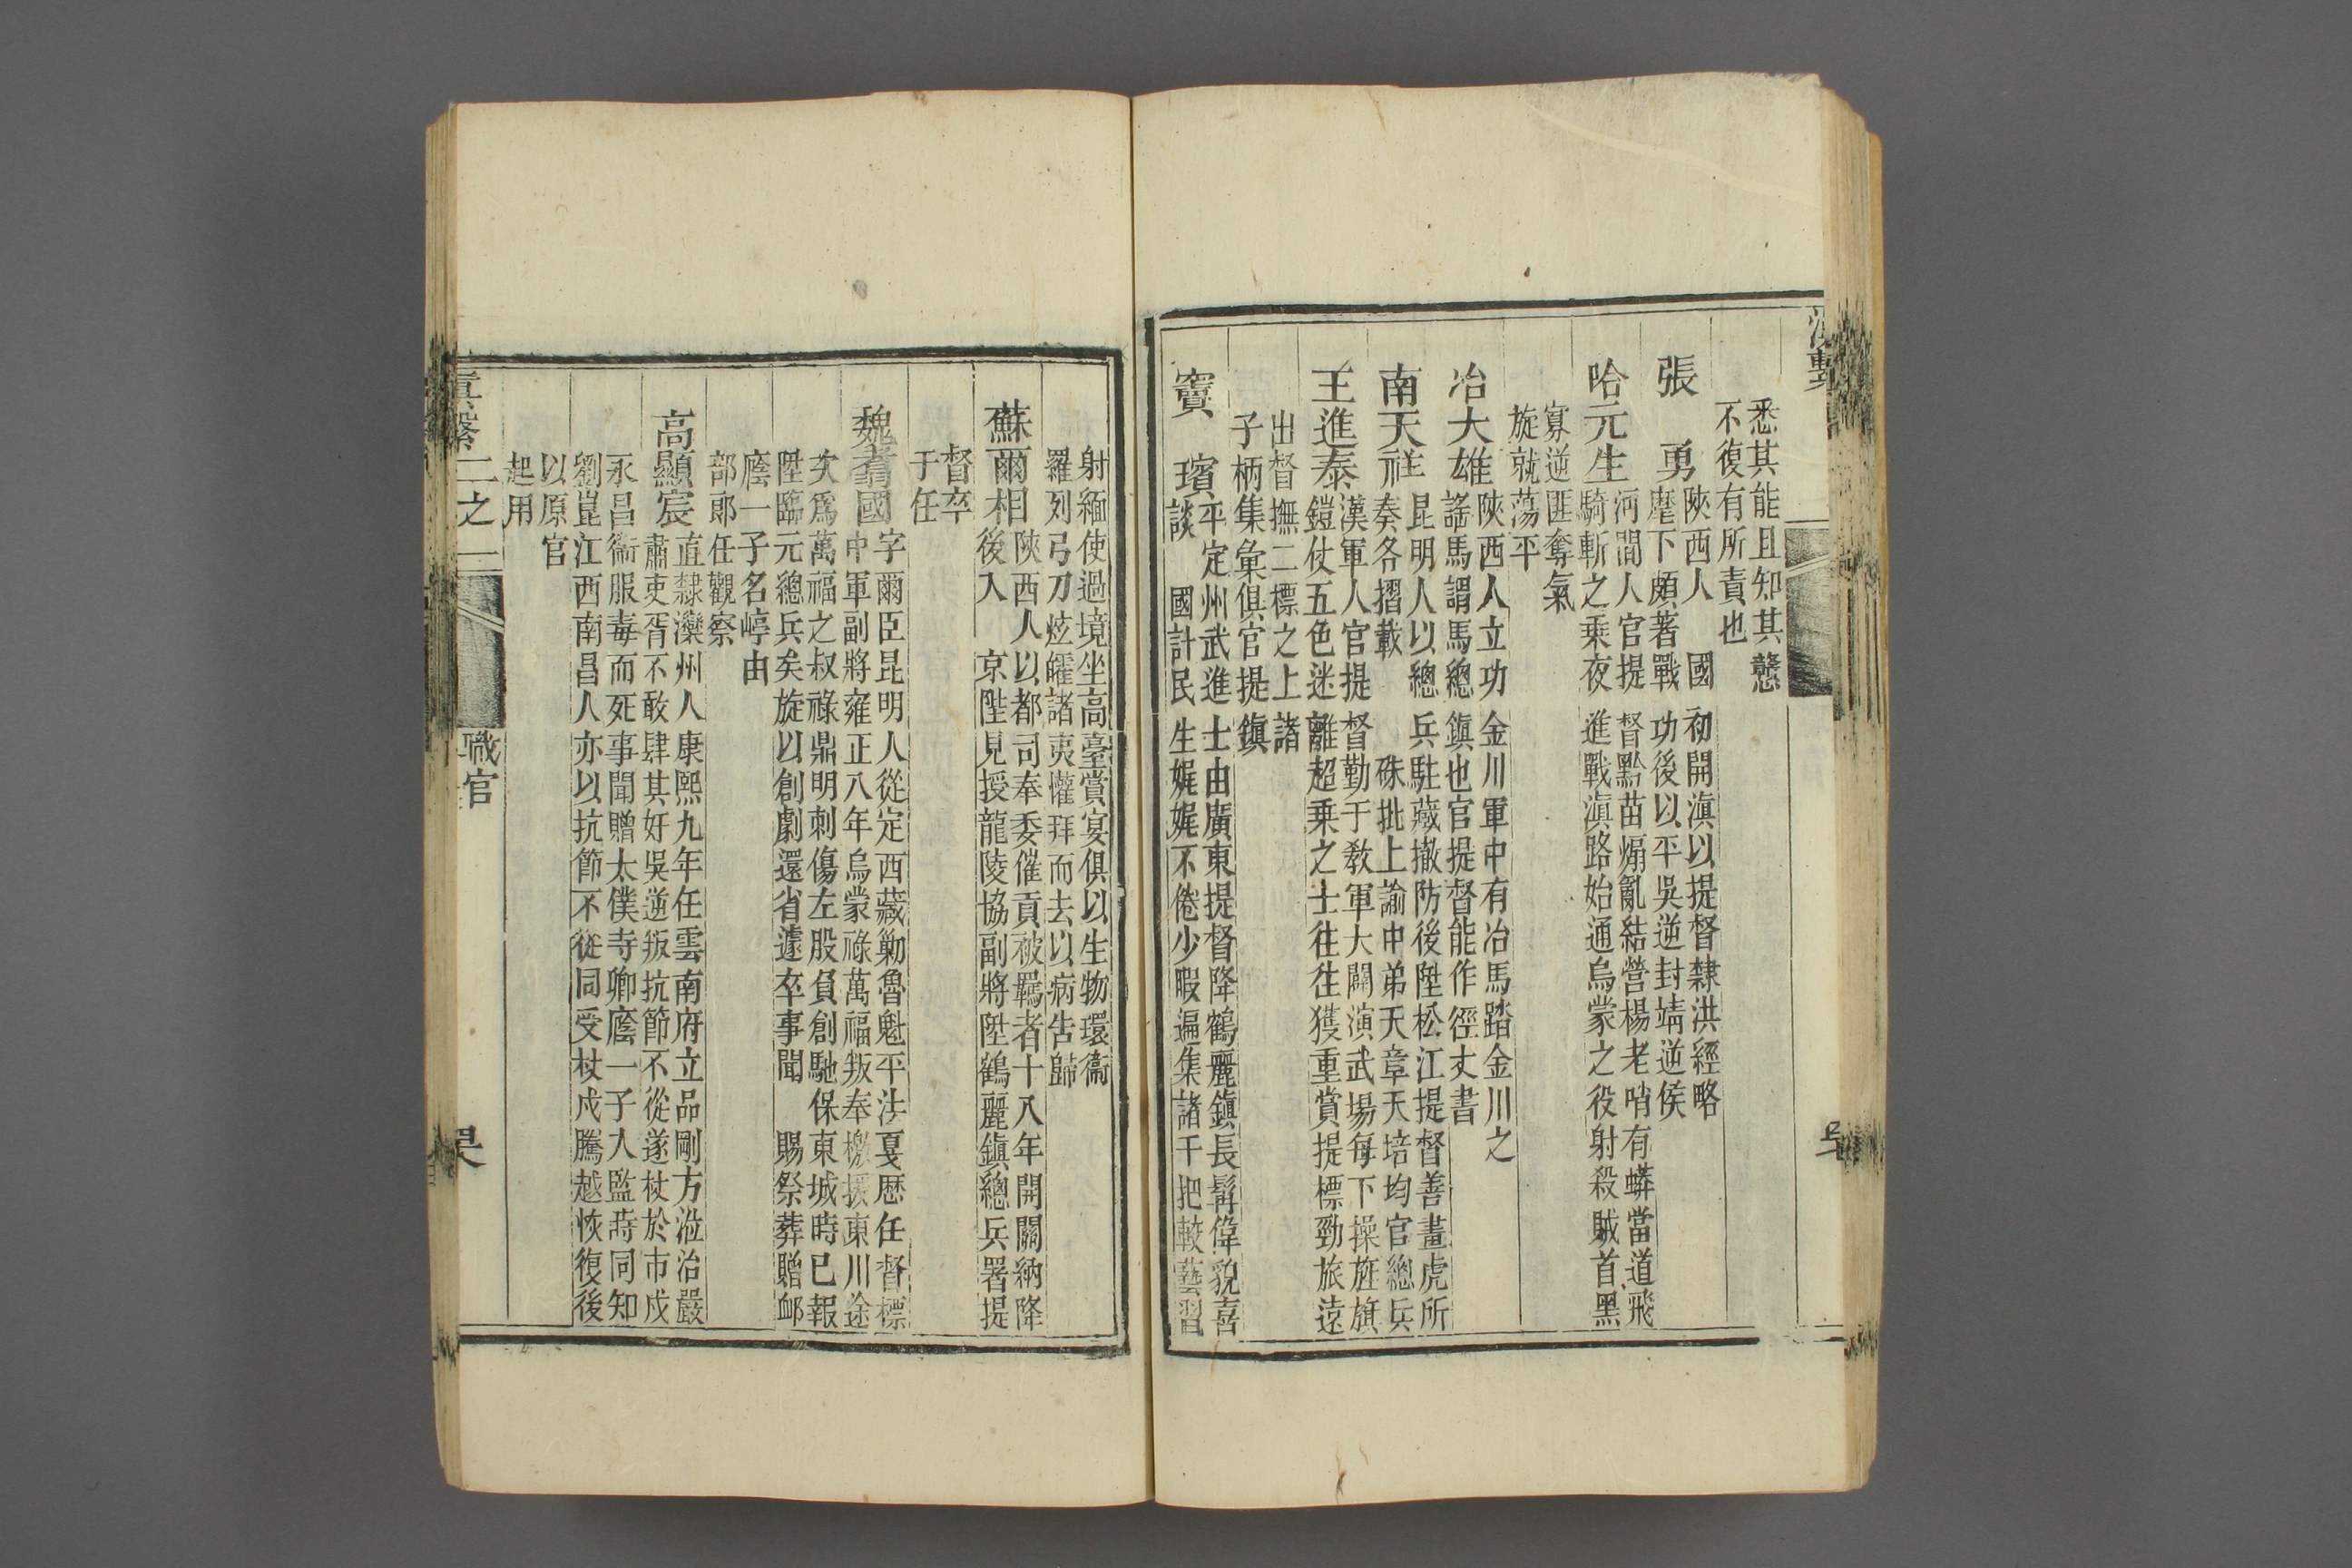 悉其能且知其戇
不復有所責也
張 勇
陝西人 國初開滇以提督隸洪經略
麾下頗著戰功後以平吳逆封靖逆侯
哈元生
河間人官提督黔苗煽亂結營楊老哨有蟒當道飛
騎斬之乘夜進戰滇路始通烏蒙之役射殺賊首黑
寡逆匪奪氣
旋就蕩平
冶大雄
陝西人立功金川軍中有冶馬踏金川之
謠馬謂馬總鎮也官提督能作徑丈書
南天祥
昆明人以總兵駐藏撤防後陞松江提督善畫虎所
奏各摺載 硃批上諭中弟天章天培均官總兵
王進泰
漢軍人官提督勤于教軍大閱演武場每下操旌旗
鎧仗五色迷離超乘之士往往獲重賞提標勁旅遠
出督撫二標之上諸
子柄集彙俱官提鎮
竇 璸
平定州武進士由廣東提督降鶴麗鎮長髯偉貌喜
談 國計民生娓娓不倦少暇遍集諸千把較藝習
射緬使過境坐高臺賞宴俱以生物環衞
羅列弓刀炫耀諸夷懽拜而去以病告歸
蘇爾相
陝西人以都司奉委催貢被羈者十八年開關納降
後入 京陛見授龍陵協副將陞鶴麗鎮總兵署提
督卒
于任
魏翥國
字爾臣昆明人從定西藏勦魯魁平法戛歷任督標
中軍副將雍正八年烏蒙祿萬福叛奉檄援東川途
次爲萬福之叔祿鼎明刺傷左股負創馳保東城時已報
陞臨元總兵矣旋以創劇還省遽卒事聞 賜祭葬贈卹
廕一子名崞由
部郎任觀察
高顯宸
直隸灤州人康熙九年任雲南府立品剛方涖治嚴
肅吏胥不敢肆其奸吳逆叛抗節不從遂杖於市戍
永昌衞服毒而死事聞贈太僕寺卿廕一子入監時同知
劉崑江西南昌人亦以抗節不從同受杖戍騰越恢復後
以原官
起用
二之二
職官